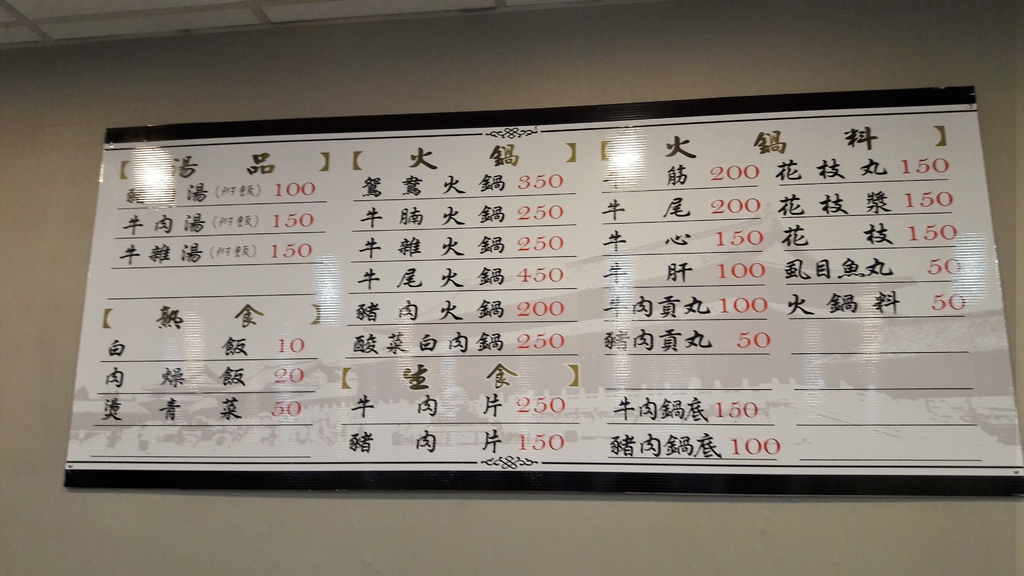 【湯品】
豬 湯(附飯) 100
牛肉湯(附飯) 150
牛雜湯(附飯) 150
【熟食】
白飯 10
肉燥飯 20
燙青菜 50
【火鍋】
鴛鴦火鍋 350
牛腩火鍋 250
牛雜火鍋 250
牛尾火鍋 450
豬肉火鍋 200
酸菜白肉鍋 250
【生食】
牛肉片 250
豬肉片 150
【火鍋料】
牛筋 200
牛尾 200
牛心 150
牛肝 100
牛肉貢丸 100
豬肉貢丸 50
牛肉鍋底 150
豬肉鍋底 100
花枝丸 150
花枝漿 150
花枝 150
虱目魚丸 50
火鍋料 50